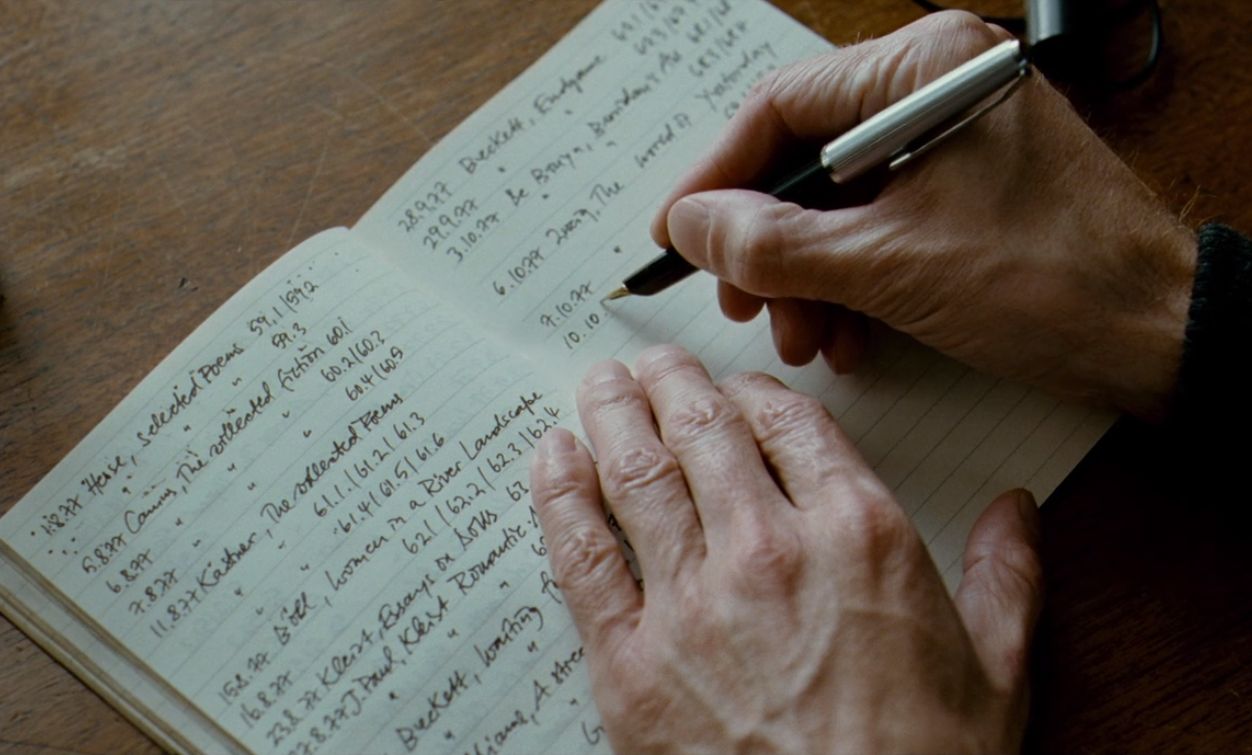 1.8.77 Hesse, selected Poems 59.1/59.2
" " " 59.3
5.8.77 Camus, The collected fiction 60.1
6.8.77 " " 60.2/60.3
7.8.77 " " 60.4/60.5
11.8.77 Kästner, The collected Poems
" " 61.1/61.2/61.3
" " 61.4/61.5/61.6
15.8.77 Böll, Women in a River Landscape
16.8.77 " 62.1/62.2/62.3/62.4
23.8.77 Kleist, Essays on Dolls 63
J. Paul, Kleist Romantic
"
Beckett, waiting
A
28.9.77 Beckett, Endgame
29.9.77 " "
3.10.77 de Bruyn, Buridan's Ass
" "
6.10.77 Zweig, The world of Yesterday
"
7.10.77
10.10